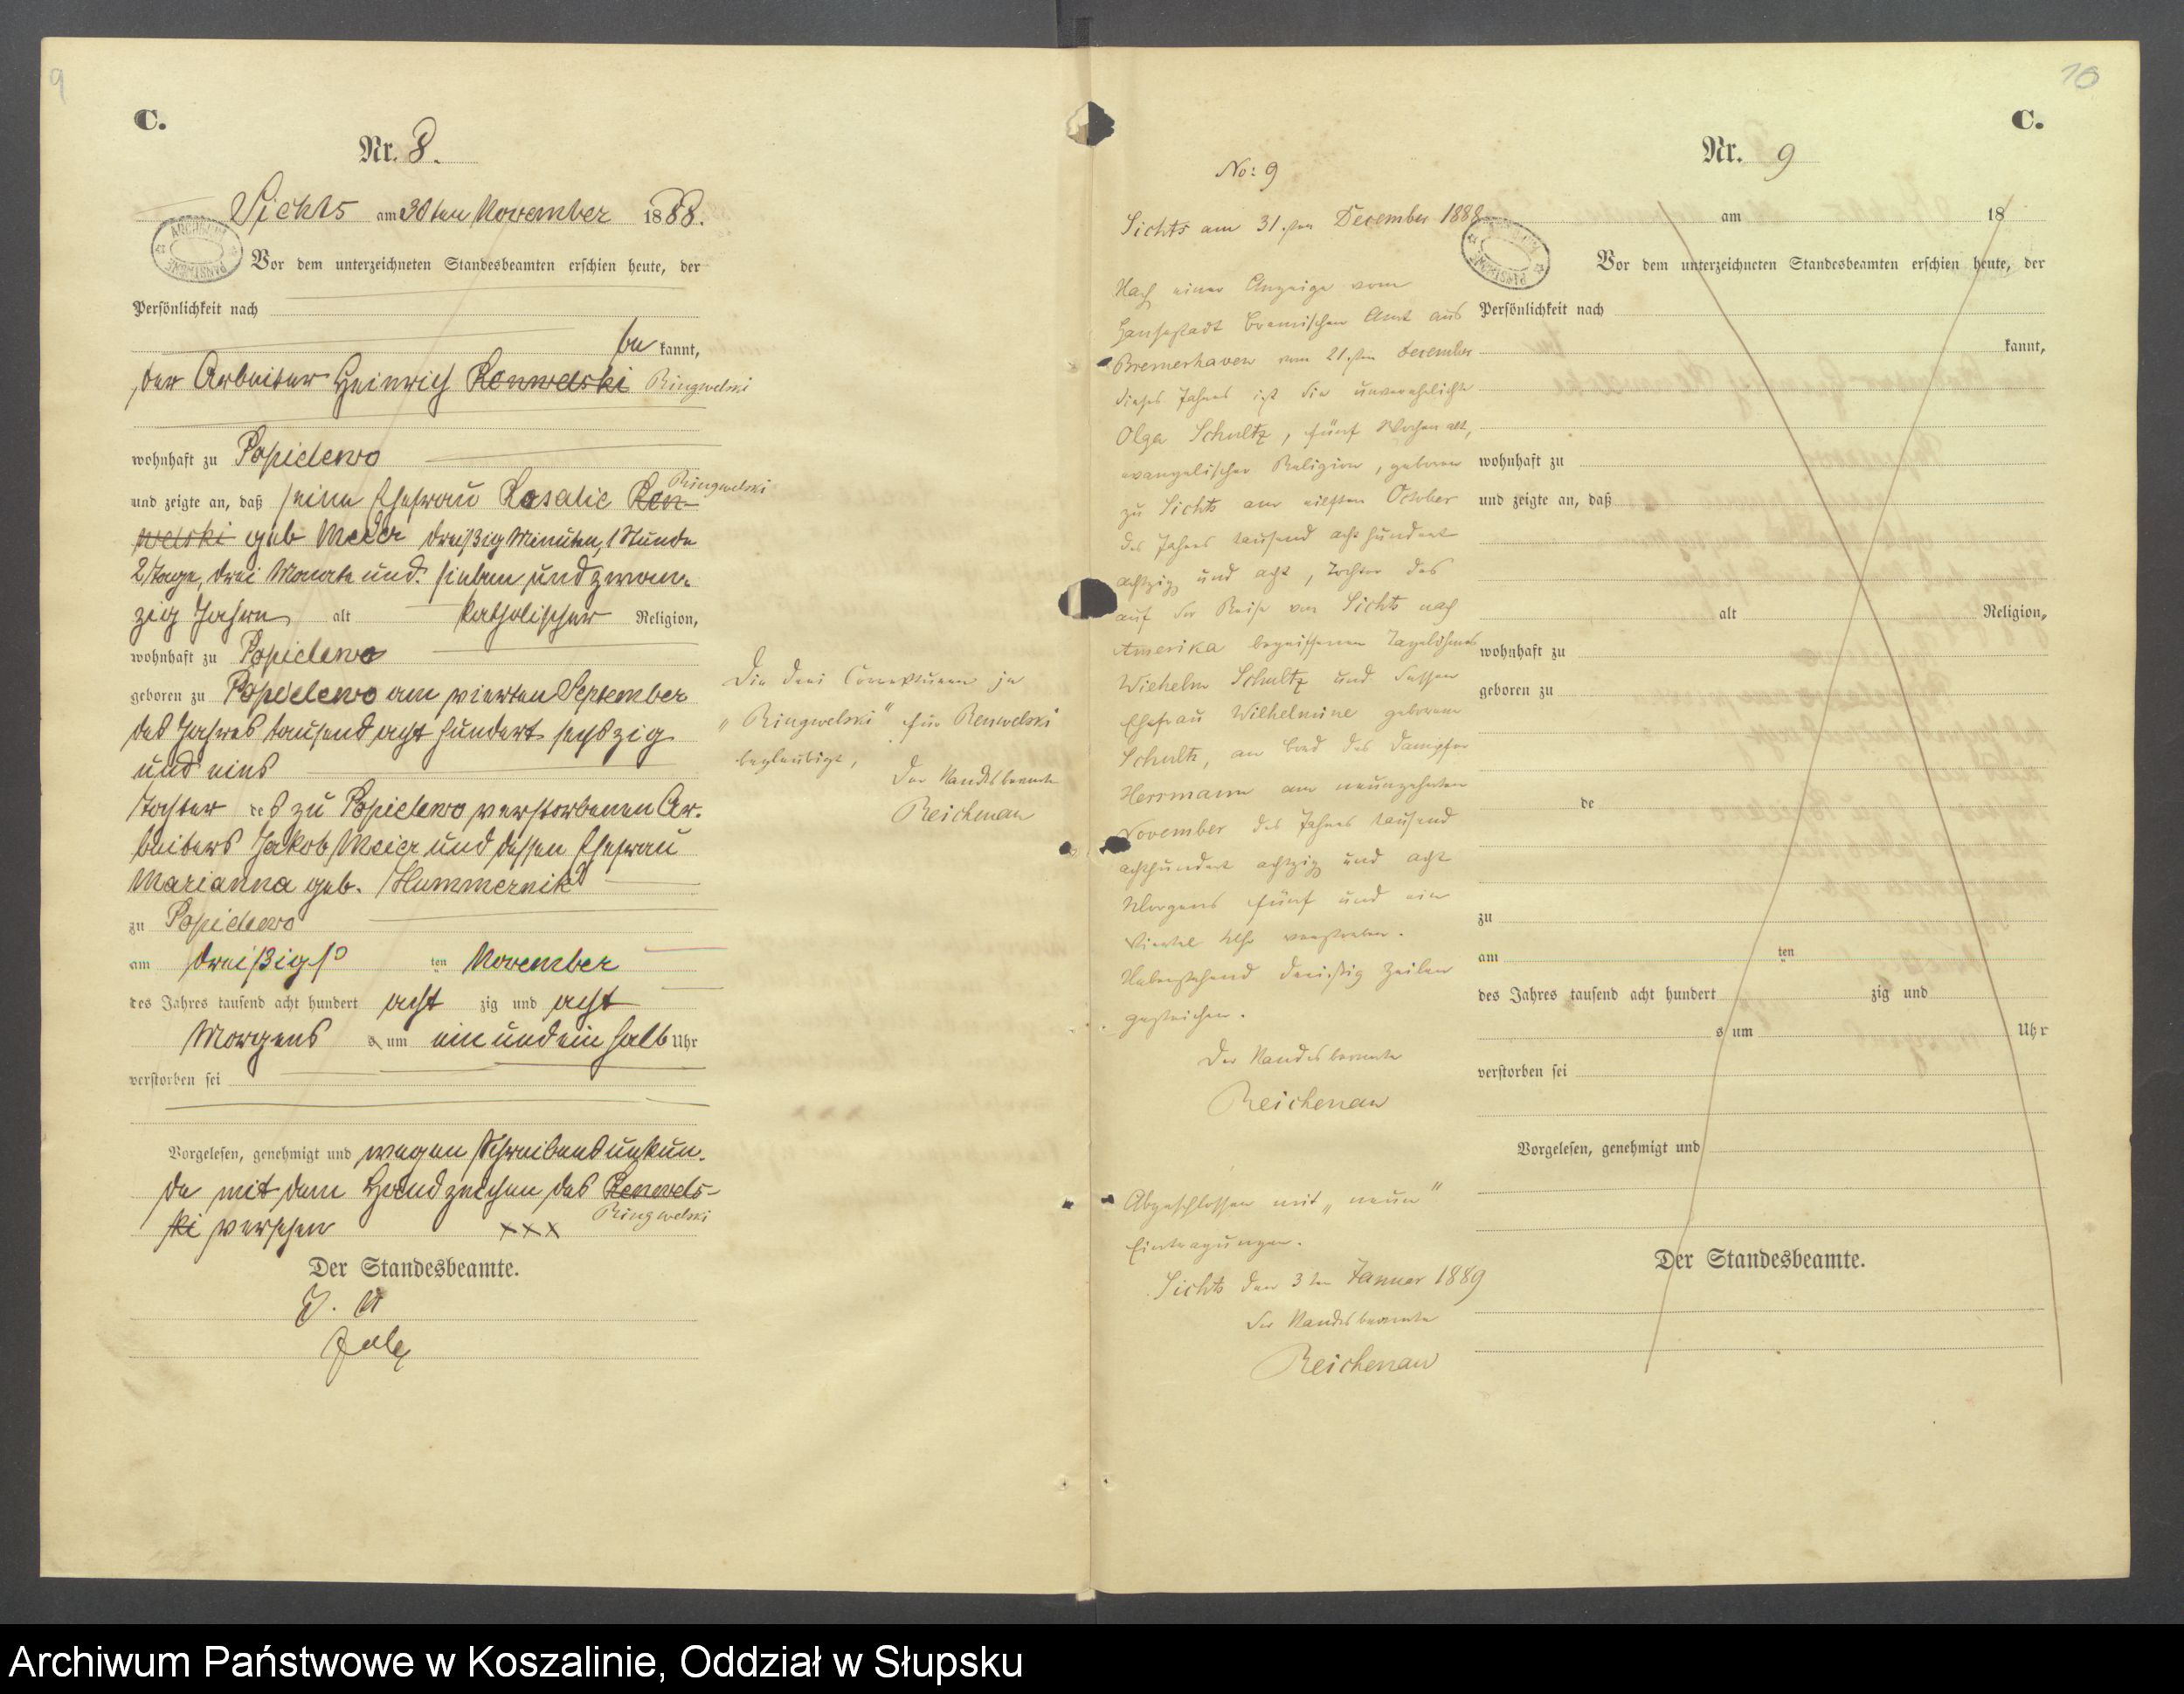 9
C.
Nr. 8.
Sichts am 30ten November 1888.
ARCHIWUM PAŃSTWOWE
Vor dem unterzeichneten Standesbeamten erschien heute, der
Persönlichkeit nach
be kannt,
der Arbeiter Heinrich Renwelski Ringwelski
wohnhaft zu Papiclewo
Ringwelski
und zeigte an, daß seine Ehefrau Rosalie Ren-
welski geb Meier dreißig Minuten, 1 Stunde
2 Tage, drei Monate und sieben und zwan-
zig Jahre alt katholischer Religion,
wohnhaft zu Papiclewo
geboren zu Papiclewo am vierten September
des Jahres tausend acht hundert sechszig
und eins
Tochter des zu Papiclewo verstorbenen Ar-
beiters Jakob Meier und dessen Ehefrau
Marianna geb.
zu Papiclewo
am dreißigst ten November
des Jahres tausend acht hundert acht zig und acht
Morgens s um ein und ein halb Uhr
verstorben sei
Vorgelesen, genehmigt und wegen Schreibensunkun-
de mit dem Handzeichen des Renwels-
ki versehen XXX Ringwelski
Der Standesbeamte.
J. V.
Die drei Correkturen in
„Ringwelski" für Renwelski
beglaubigt,
Der Standesbeamte
Reichenau
10
C.
No: 9
Sichts am 31.sten December 1888
Nach einer Anzeige vom
Hansestadt Bremischen Amt aus
Bremerhaven vom 21.sten December
dieses Jahres ist die unverehelichte
Olga Schultz, fünf Wochen alt,
evangelischer Religion, geboren
zu Sichts am eilften October
des Jahres tausend acht hundert
achtzig und acht, Tochter des
auf der Reise von Sichts nach
Amerika begriffenen Tagelöhners
Wilhelm Schultz und dessen
Ehefrau Wilhelmine geborene
Schultz, an Bord des Dampfer
Herrmann am neunzehnten
November des Jahres tausend
achthundert achtzig und acht
Morgens fünf und ein
Viertel Uhr verstorben.
Nebenstehend dreißig Zeilen
gestrichen.
Der Standesbeamte
Reichenau
Abgeschlossen mit „neun"
Eintragungen.
Sichts den 3ten Januar 1889
Der Standesbeamte
Reichenau
Nr. 9
am 18
ARCHIWUM PAŃSTWOWE
Vor dem unterzeichneten Standesbeamten erschien heute, der
Persönlichkeit nach
kannt,
wohnhaft zu
und zeigte an, daß
alt Religion,
wohnhaft zu
geboren zu
de
zu
am ten
des Jahres tausend acht hundert zig und
s um Uhr
verstorben sei
Vorgelesen, genehmigt und
Der Standesbeamte.
Archiwum Państwowe w Koszalinie, Oddział w Słupsku